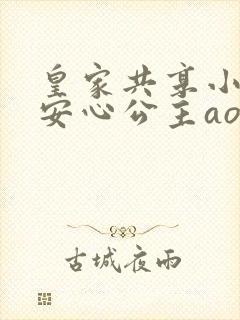 皇家共享小
安心公主ao
古城夜雨